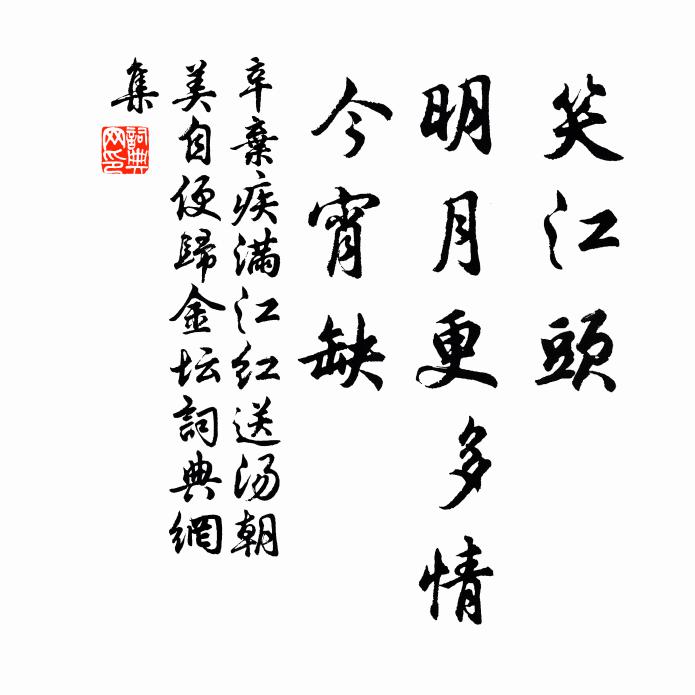 笑江頭
明月更多情
今宵缺
辛棄疾滿江红送汤朝
美自便歸金坛詞典網
集
詞典
网印